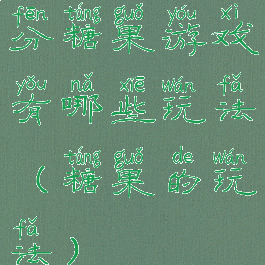 fēn táng guǒ yóu xì
分糖果游戏
yǒu nǎ xiē wán fǎ
有哪些玩法
táng guǒ de wán
（糖果的玩
fǎ
法）